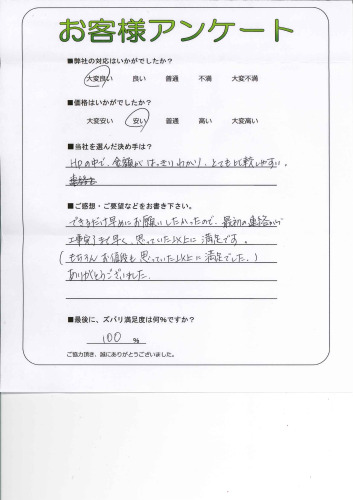 お客様アンケート
■弊社の対応はいかがでしたか？
大変良い 良い 普通 不満 大変不満
■価格はいかがでしたか？
大変安い 安い 普通 高い 大変高い
■当社を選んだ決め手は？
HPの中で、金額がはっきりわかり、とても比較しやすい。
■ご感想・ご要望などをお書き下さい。
できるだけ早めにお願いしたかったので、最初の連絡から
工事完了まで早く、思っていた以上に満足です。
（もちろんお値段も思っていた以上に満足でした。）
ありがとうございました。
■最後に、ズバリ満足度は何%ですか？
100 %
ご協力頂き、誠にありがとうございました。